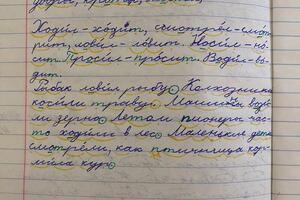 Ходил - ходит, смотрел - смот-
рит, ловил - ловит. Носил - но-
сит. Просил - просит. Водил - во-
дит.
Рыбак ловил рыбу. Колхозники
косили траву. Машины вози-
ли зерно. Летом пионеры час-
то ходили в лес. Маленькие дети
смотрели, как птичница кор-
мила кур.